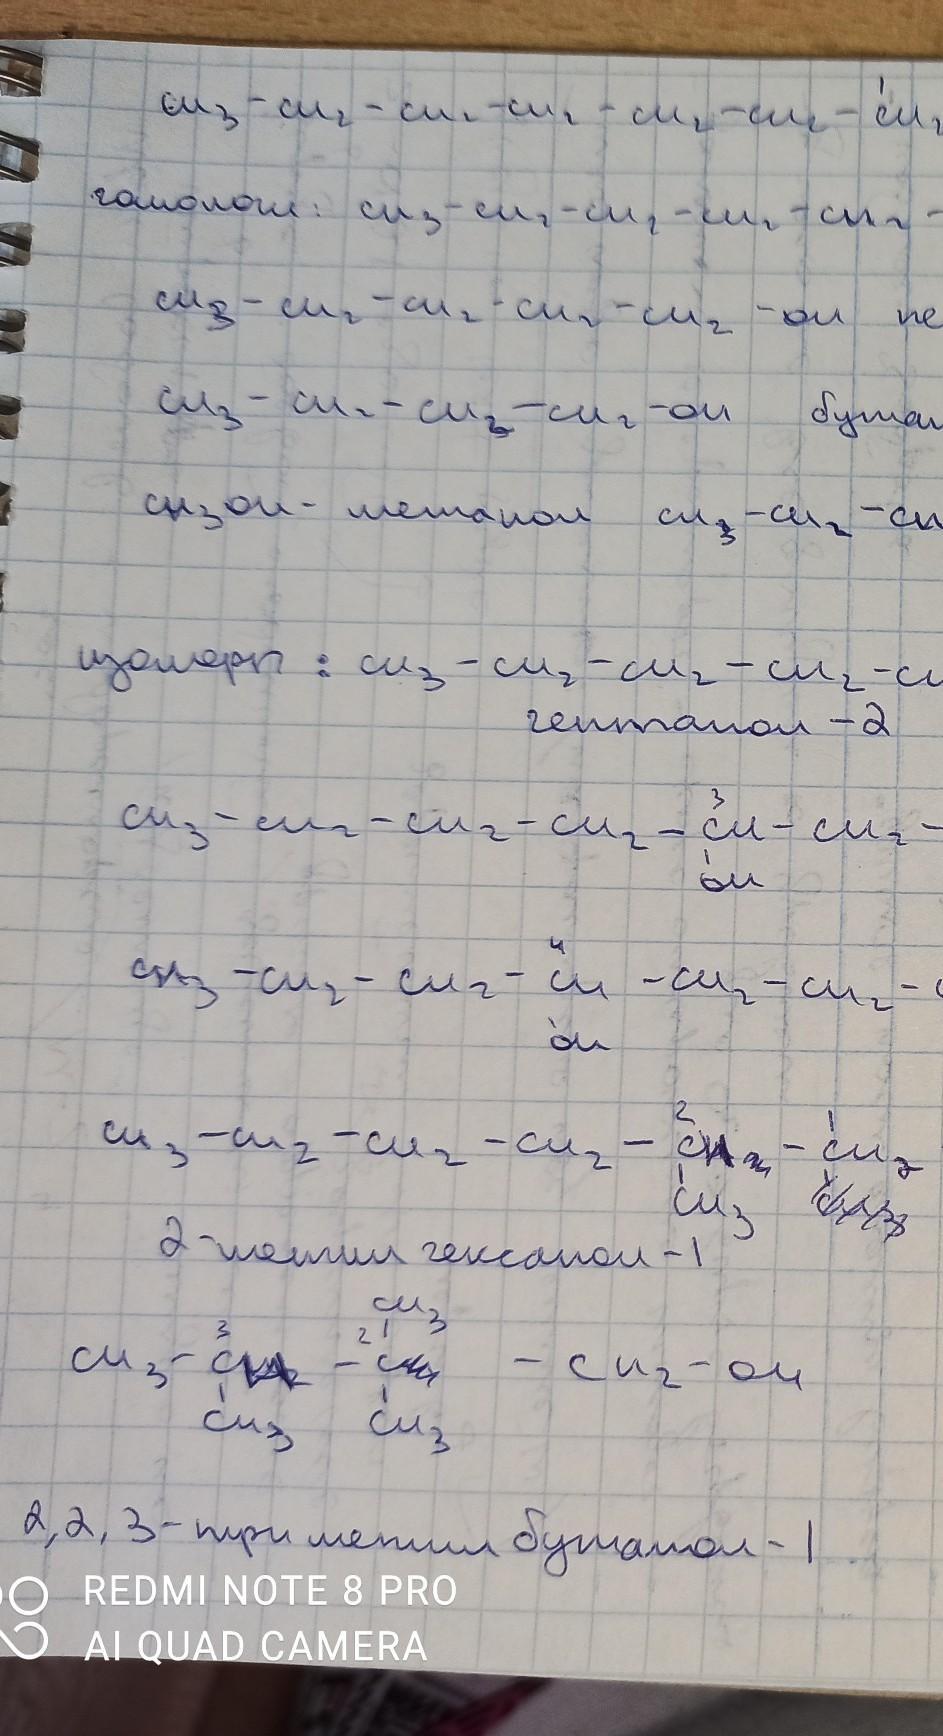 CH3-CH2-CH2-CH2-CH2-CH2-CH2
гомологи: CH3-CH2-CH2-CH2-CH2-
CH3-CH2-CH2-CH2-CH2-OH пе
CH3-CH2-CH2-CH2-OH бутан
CH3OH - метанол CH3-CH2-CH
изомеры: CH3-CH2-CH2-CH2-C
гептанол-2
3
CH3-CH2-CH2-CH2-CH-CH2-
OH
4
CH3-CH2-CH2-CH-CH2-CH2-
OH
2 1
CH3-CH2-CH2-CH2-CH-CH2
CH3
2-метил гексанол-1
CH3
3 2
CH3-CH-C-CH2-OH
CH3 CH3
2,2,3-триметил бутанол-1
REDMI NOTE 8 PRO
AI QUAD CAMERA